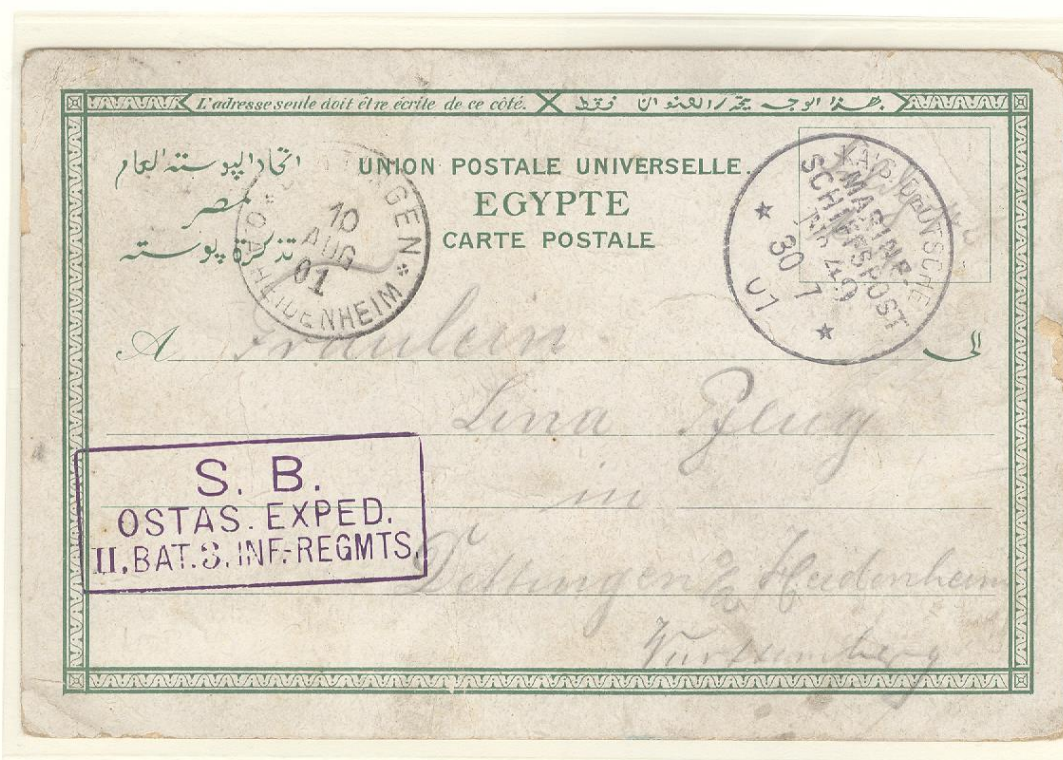 L'adresse seule doit être écrite de ce côté. هذا الوجه مخصص للعنوان فقط
اتحاد البوسته العام
UNION POSTALE UNIVERSELLE.
مصر
EGYPTE
تذكرة بوسته
CARTE POSTALE
GEN * O.A. HEIDENHEIM *
10
AUG
01
DEUTSCHE
MARINE-
SCHIFFSPOST
No 49
30 7
01
A Fräulein. الى
Lina Pflug
in
Dettingen a/ Heidenheim
Württemberg
S. B.
OSTAS. EXPED.
II. BAT. 3. INF.-REGMTS.